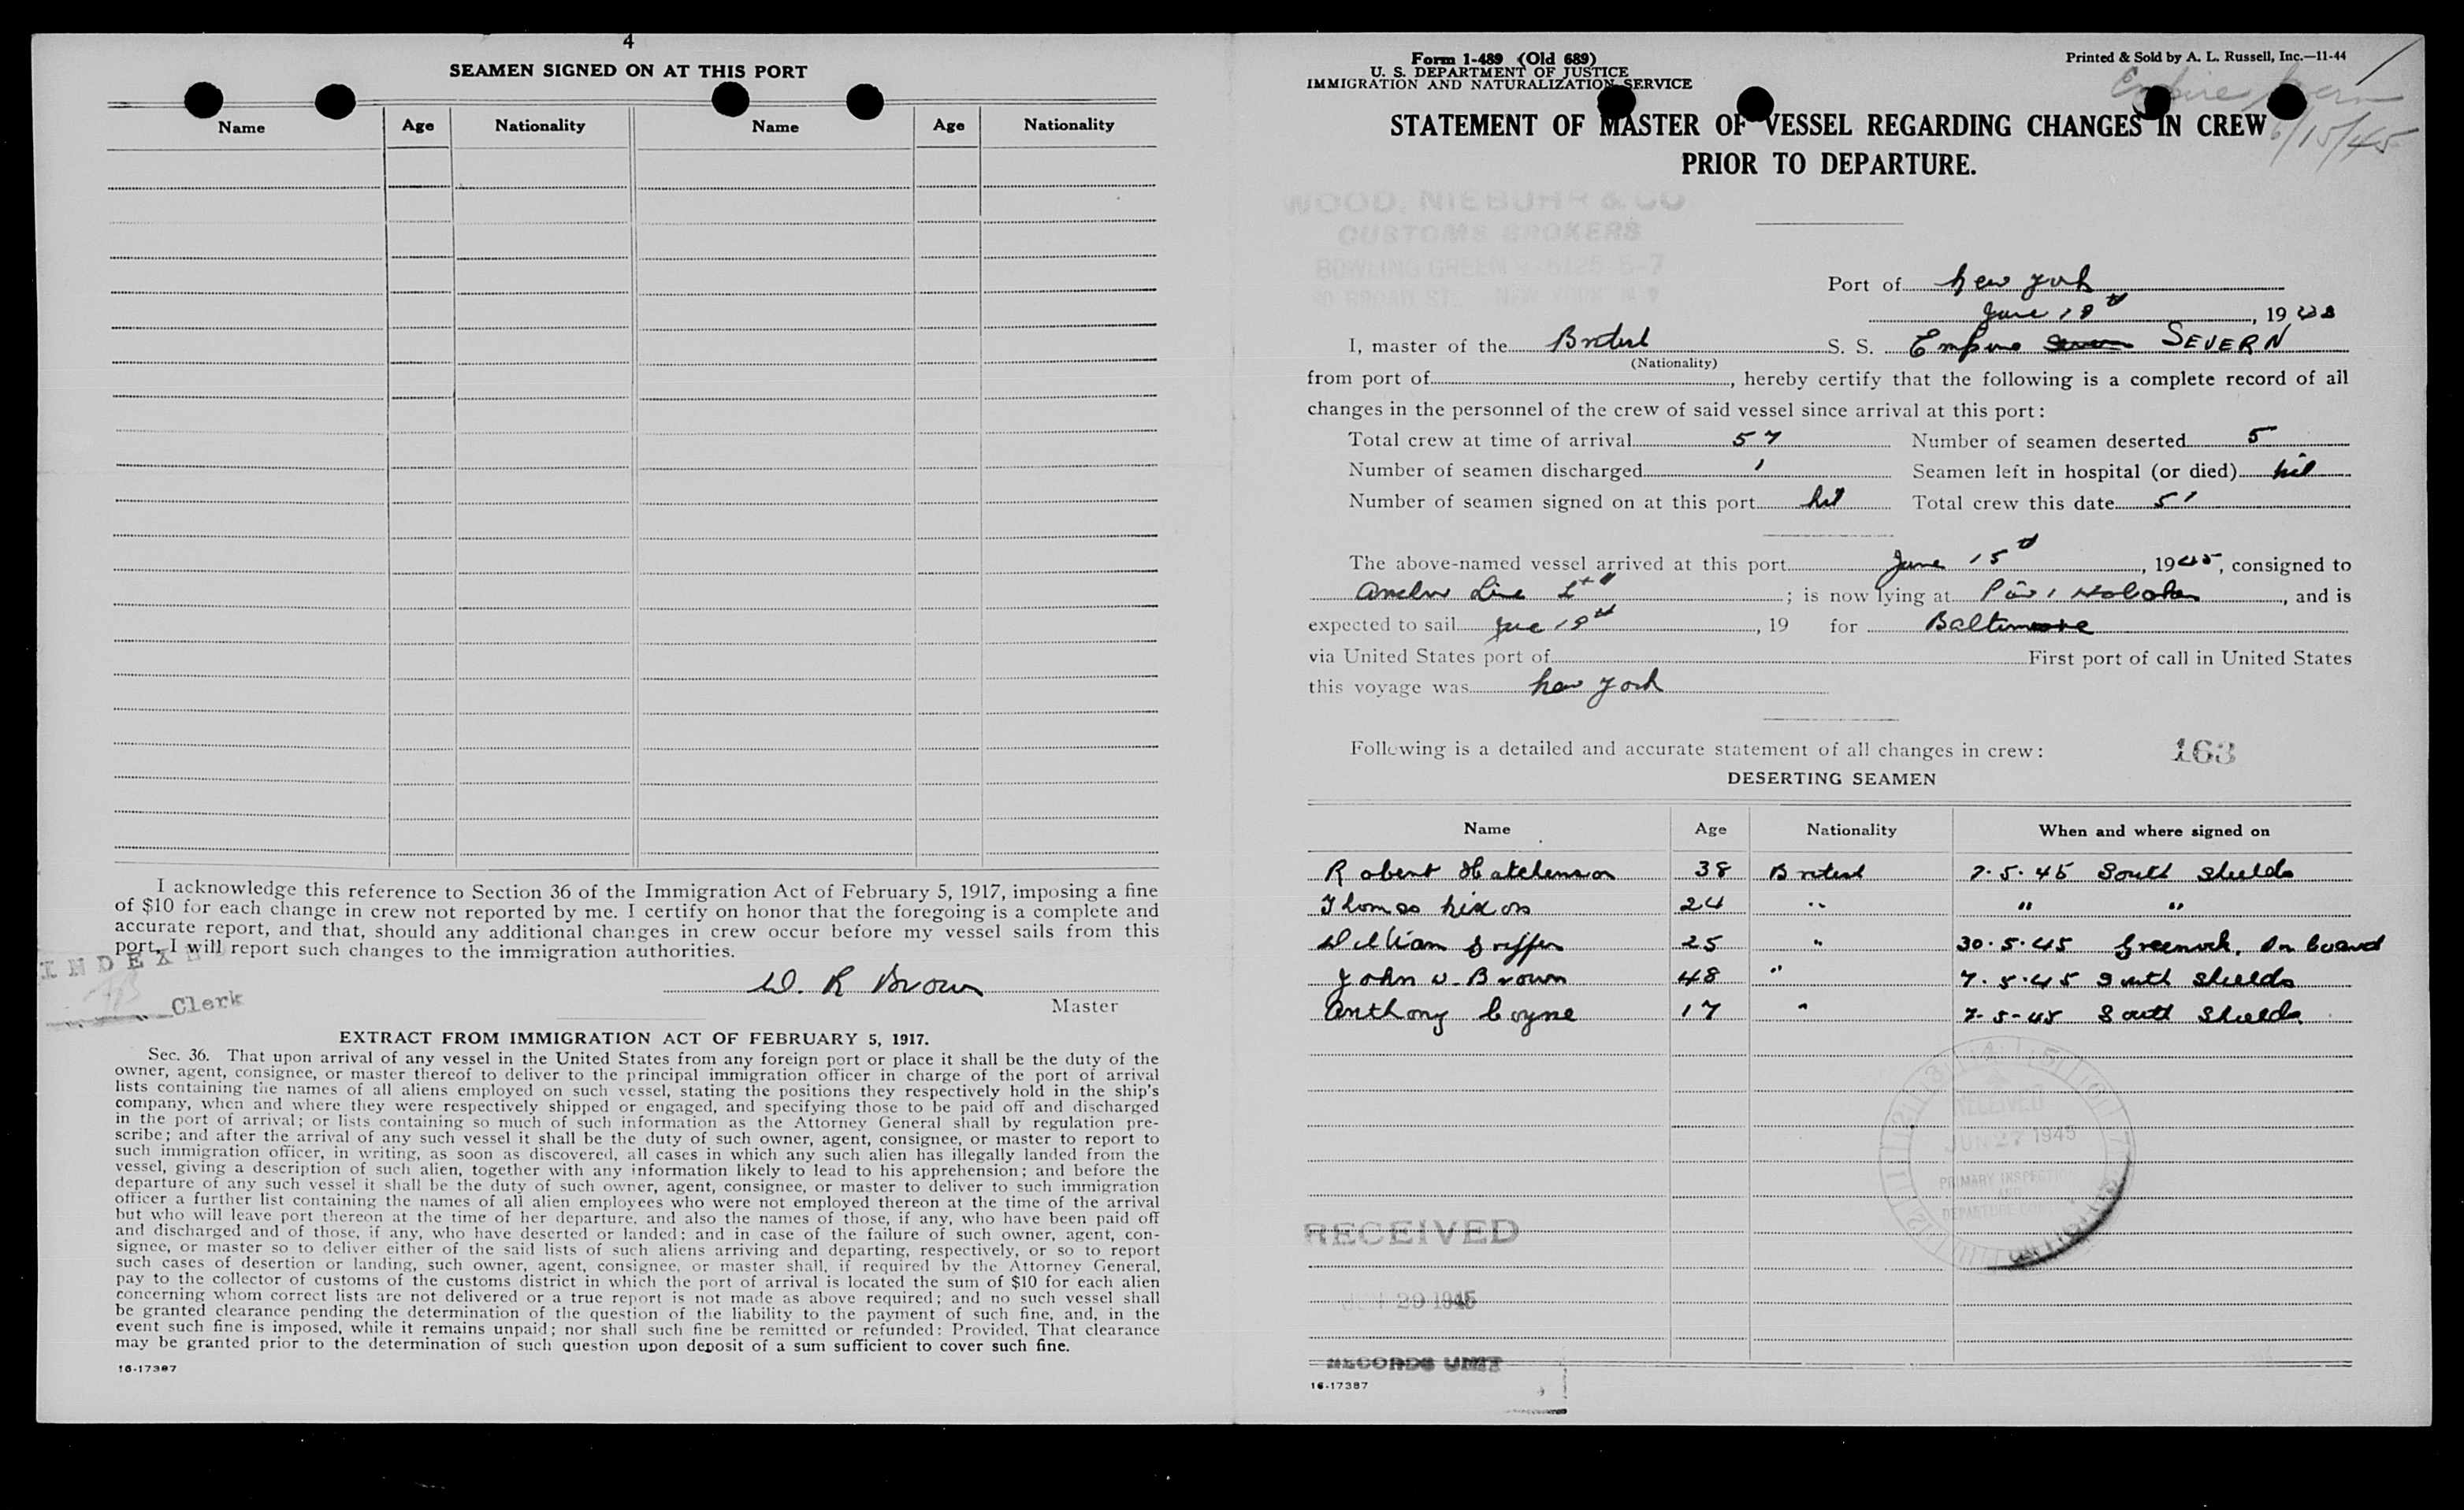 4
SEAMEN SIGNED ON AT THIS PORT
Name Age Nationality Name Age Nationality
I acknowledge this reference to Section 36 of the Immigration Act of February 5, 1917, imposing a fine
of $10 for each change in crew not reported by me. I certify on honor that the foregoing is a complete and
accurate report, and that, should any additional changes in crew occur before my vessel sails from this
port, I will report such changes to the immigration authorities.
INDEXED
Clerk
W. R Brown
Master
EXTRACT FROM IMMIGRATION ACT OF FEBRUARY 5, 1917.
Sec. 36. That upon arrival of any vessel in the United States from any foreign port or place it shall be the duty of the
owner, agent, consignee, or master thereof to deliver to the principal immigration officer in charge of the port of arrival
lists containing the names of all aliens employed on such vessel, stating the positions they respectively hold in the ship's
company, when and where they were respectively shipped or engaged, and specifying those to be paid off and discharged
in the port of arrival; or lists containing so much of such information as the Attorney General shall by regulation pre-
scribe; and after the arrival of any such vessel it shall be the duty of such owner, agent, consignee, or master to report to
such immigration officer, in writing, as soon as discovered, all cases in which any such alien has illegally landed from the
vessel, giving a description of such alien, together with any information likely to lead to his apprehension; and before the
departure of any such vessel it shall be the duty of such owner, agent, consignee, or master to deliver to such immigration
officer a further list containing the names of all alien employees who were not employed thereon at the time of the arrival
but who will leave port thereon at the time of her departure, and also the names of those, if any, who have been paid off
and discharged and of those, if any, who have deserted or landed; and in case of the failure of such owner, agent, con-
signee, or master so to deliver either of the said lists of such aliens arriving and departing, respectively, or so to report
such cases of desertion or landing, such owner, agent, consignee, or master shall, if required by the Attorney General,
pay to the collector of customs of the customs district in which the port of arrival is located the sum of $10 for each alien
concerning whom correct lists are not delivered or a true report is not made as above required; and no such vessel shall
be granted clearance pending the determination of the question of the liability to the payment of such fine, and, in the
event such fine is imposed, while it remains unpaid; nor shall such fine be remitted or refunded: Provided, That clearance
may be granted prior to the determination of such question upon deposit of a sum sufficient to cover such fine.
16-17387
Form 1-489 (Old 689)
U. S. DEPARTMENT OF JUSTICE
IMMIGRATION AND NATURALIZATION SERVICE
Printed & Sold by A. L. Russell, Inc.—11-44
Empire Severn
6/15/45
STATEMENT OF MASTER OF VESSEL REGARDING CHANGES IN CREW
PRIOR TO DEPARTURE.
WOOD, NIEBUHR & CO
CUSTOMS BROKERS
BOWLING GREEN 9-6125-6-7
BROAD ST., NEW YORK N Y
Port of New York
June 18th, 19
I, master of the British S. S. Empire SEVERN
(Nationality)
from port of , hereby certify that the following is a complete record of all
changes in the personnel of the crew of said vessel since arrival at this port:
Total crew at time of arrival 57 Number of seamen deserted 5
Number of seamen discharged 1 Seamen left in hospital (or died) nil
Number of seamen signed on at this port nil Total crew this date 51
The above-named vessel arrived at this port June 15th, 1945, consigned to
Anchor Line Ltd; is now lying at Pier 1 Hoboken, and is
expected to sail June 18th, 19 for Baltimore
via United States port of First port of call in United States
this voyage was New York
Following is a detailed and accurate statement of all changes in crew:
163
DESERTING SEAMEN
Name Age Nationality When and where signed on
Robert Hutchinson 38 British 7.5.45 South Shields
Thomas Nixon 24 " " "
William Griffin 25 " 30.5.45 Greenock. On board
John W. Brown 48 " 7.5.45 South Shields
Anthony Coyne 17 " 7-5-45 South Shields
RECEIVED
JUN 27 1945
PRIMARY INSPECTION
AND
DEPARTURE CONTROL
RECEIVED
29 1945
RECORDS UNIT
16-17387